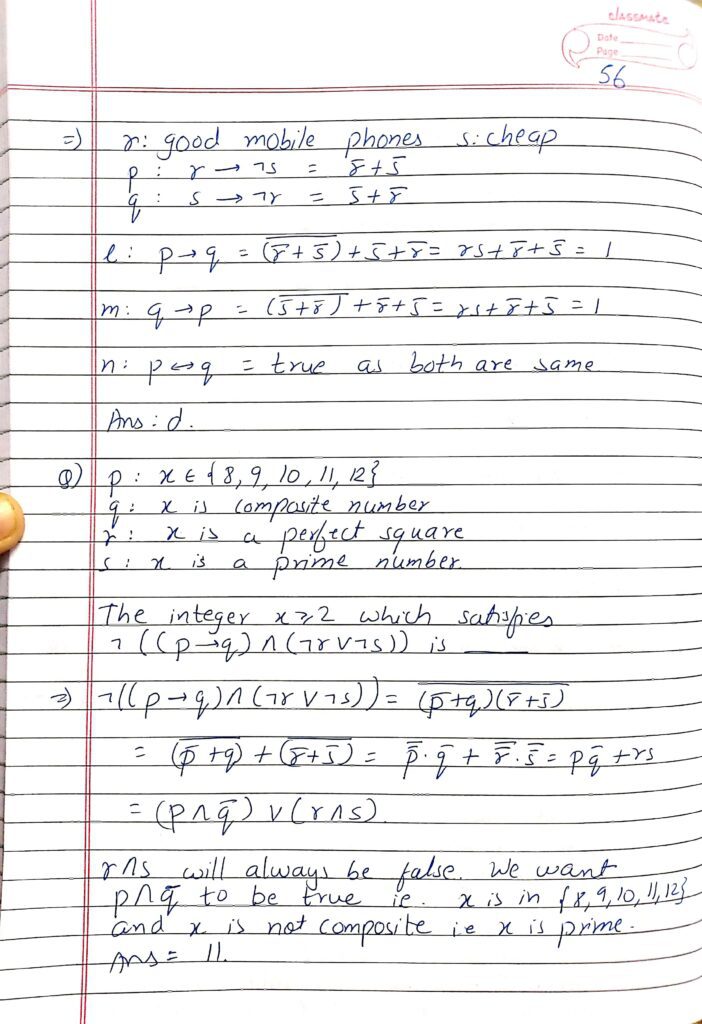 classmate
Date
Page
56
⇒) r: good mobile phones s: cheap
p : r → ¬s = r̅ + s̅
q : s → ¬r = s̅ + r̅
l : p → q = \overline{(r̅ + s̅)} + s̅ + r̅ = rs + r̅ + s̅ = 1
m : q → p = \overline{(s̅ + r̅)} + r̅ + s̅ = rs + r̅ + s̅ = 1
n : p ↔ q = true as both are same
Ans : d.
Q) p : x ∈ {8, 9, 10, 11, 12}
q : x is composite number
r : x is a perfect square
s : x is a prime number.
The integer x ≥ 2 which satisfies
¬((p → q) ∧ (¬r ∨ ¬s)) is ____
⇒) ¬((p → q) ∧ (¬r ∨ ¬s)) = \overline{(p̅ + q)(r̅ + s̅)}
= \overline{(p̅ + q)} + \overline{(r̅ + s̅)} = p̿ · q̅ + r̿ · s̿ = pq̅ + rs
= (p ∧ q̅) ∨ (r ∧ s)
r ∧ s will always be false. We want
p ∧ q̅ to be true ie. x is in {8, 9, 10, 11, 12}
and x is not composite i.e x is prime.
Ans = 11.